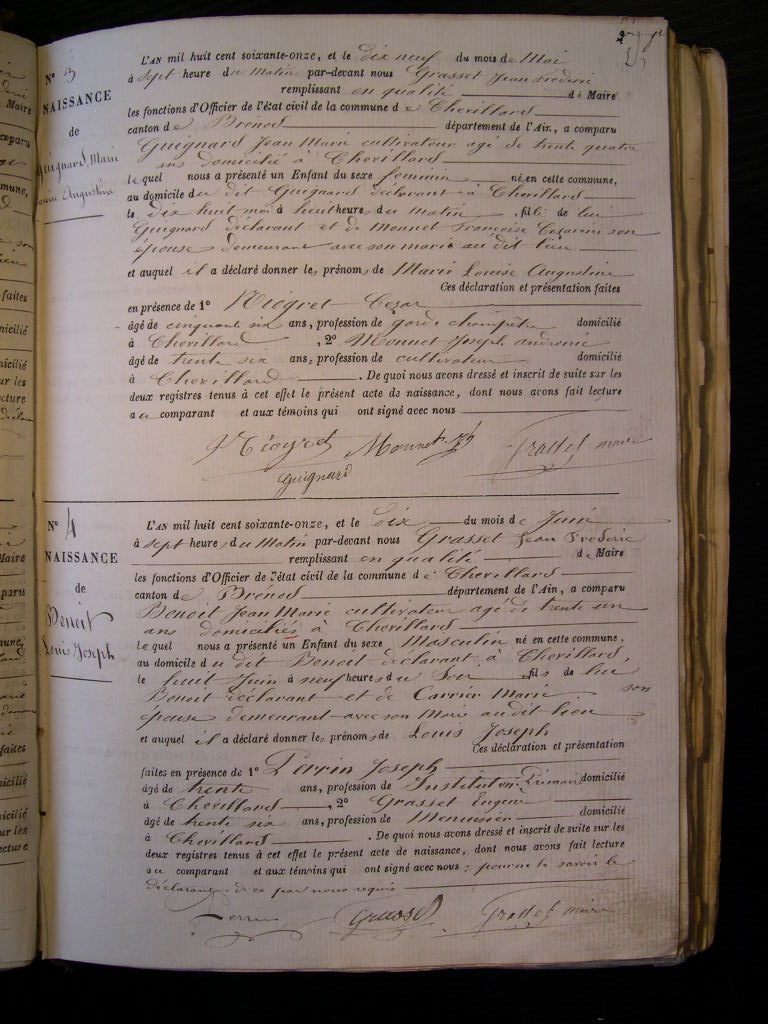 N° 3
NAISSANCE
de
Guignard, Marie
Louise Augustine
L'AN mil huit cent soixante-onze, et le dix neuf du mois de Mai
à sept heure du Matin par-devant nous Grasset Jean Frederic
remplissant en qualité de Maire
les fonctions d'Officier de l'état civil de la commune de Chevillard
canton de Brénod département de l'Ain, a comparu
Guignard Jean Marie cultivateur agé de trente quatre
ans domicilié à Chevillard
lequel nous a présenté un Enfant du sexe feminin né en cette commune,
au domicile du dit Guignard déclarant à Chevillard
le dix huit mai à huit heures du matin, fille de lui
Guignard déclarant et de Monnet Françoise Cezarine son
épouse demeurant avec son marie au dit lieu
et auquel il a déclaré donner les prénoms de Marie Louise Augustine
Ces déclaration et présentation faites
en présence de 1° Niogret Cezar
âgé de cinquante six ans, profession de garde champêtre domicilié
à Chevillard, 2° Monnet Joseph
âgé de trente six ans, profession de cultivateur domicilié
à Chevillard. De quoi nous avons dressé et inscrit de suite sur les
deux registres tenus à cet effet le présent acte de naissance, dont nous avons fait lecture
au comparant et aux témoins qui ont signé avec nous
Niogret Monnet Jh Grasset maire
Guignard
N° 4
NAISSANCE
de
Benoit
Louis Joseph
L'AN mil huit cent soixante-onze, et le dix du mois de Juin
à sept heures du Matin par-devant nous Grasset Jean Frederic
remplissant en qualité de Maire
les fonctions d'Officier de l'état civil de la commune de Chevillard
canton de Brénod département de l'Ain, a comparu
Benoit Jean Marie cultivateur agé de trente un
ans domiciliés à Chevillard
lequel nous a présenté un Enfant du sexe Masculin né en cette commune,
au domicile du dit Benoit déclarant à Chevillard,
le huit Juin à neuf heures du Soir, fils de lui
Benoit déclarant et de Carrier Marie son
épouse demeurant avec son Marie au dit lieu
et auquel il a déclaré donner les prénoms de Louis Joseph
Ces déclaration et présentation
faites en présence de 1° Perrin Joseph
âgé de trente ans, profession de Instituteur Primaire domicilié
à Chevillard, 2° Grasset Eugene
âgé de trente six ans, profession de Menuisier domicilié
à Chevillard. De quoi nous avons dressé et inscrit de suite sur les
deux registres tenus à cet effet le présent acte de naissance, dont nous avons fait lecture
au comparant et aux témoins qui ont signé avec nous; pour ne le savoir le
déclarant de ce par nous requis
Perrin Grasset Grasset maire